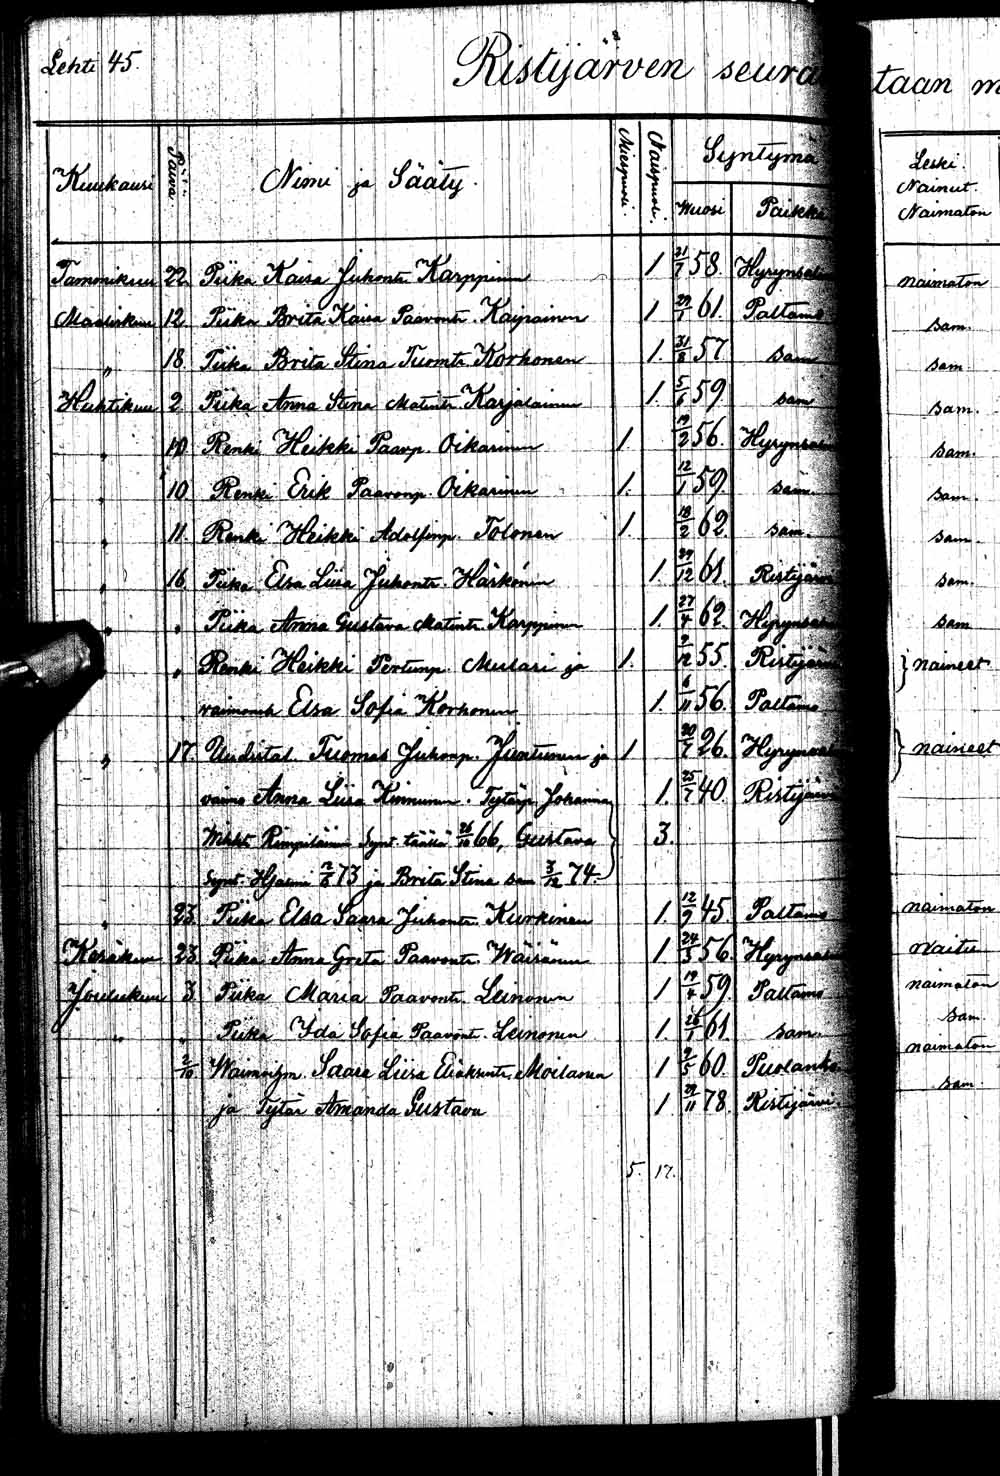 Lehti 45.
Ristijärven seura taan m
Kuukausi Päivä Nimi ja Sääty. Miespuoli. Naispuoli. Syntymä Wuosi Paikka Leski. Nainut. Naimaton
Tammikuu 22 Piika Kaisa Juhontr Karppinen 1 21/7 58. Hyrynsal naimaton
Maaliskuu 12. Piika Brita Kaisa Paavontr. Kaipainen 1 29/1 61. Paltamo sam.
" 18. Piika Brita Stina Tuomtr. Korhonen 1. 31/8 57. sam sam.
Huhtikuu 2 Piika Anna Stina Matintr. Karjalainen 1. 5/6 59 sam sam.
" 10. Renki Heikki Paavp. Oikarinen 1. 19/2 56. Hyrynsal sam.
" 10 Renki Erik Paavonp. Oikarinen 1. 12/1 59. sam. sam.
" 11. Renki Heikki Adolfinp. Tolonen 1. 18/2 62. sam. sam.
" 16. Piika Elsa Liisa Juhontr. Härkönen 1. 29/12 61. Ristijärv sam.
" " Piika Anna Gustava Matintr. Karppinen 1. 27/4 62. Hyrynsal sam
" " Renki Heikki Perttunp. Mulari ja 1. 2/12 55. Ristijärv } naineet
waimonsa Elsa Sofia Korhonen 1. 6/11 56. Paltamo
" 17. Uudistal. Tuomas Juhonp. Juntunen ja 1 20/7 26. Hyrynsal } naineet
vaimo Anna Liisa Kinnunen. Tytärp Johanna 1. 25/7 40. Ristijärv
Rimpiläinen Synt. täällä 26/10 66, Gustava 3.
Synt. 2/6 73 ja Brita Stina sam 3/12 74.
" 23. Piika Elsa Saara Juhontr. Kurkinen 1. 12/9 45. Paltamo naimaton
Kesäkuu 23. Piika Anna Greta Paavontr. Wäisänen 1 24/3 56. Hyrynsal
Joulukuu 3. Piika Maria Paavontr. Leinonen 1 19/4 59. Paltamo naimaton
" " Piika Ida Sofia Paavontr. Leinonen 1. 26/1 61. sam. sam.
2/10. Saara Liisa Moilanen 1 9/5 60. Puolanka naimaton
ja Tytär Amanda Gustava 1 29/11 78. Ristijärvi sam.
5. 17.